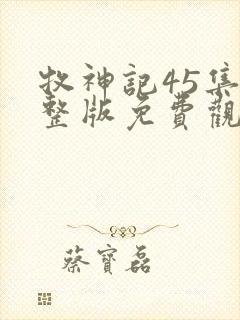 牧神記45集
整版免費觀
蔡寶磊